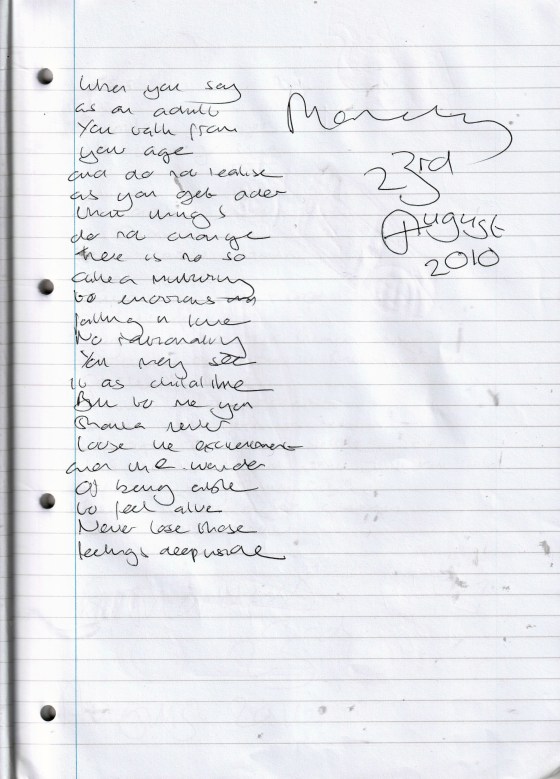 When you say
as an adult
You talk from
your age
and do not realise
as you get older
that things
do not change
there is no so
called maturing
to emotions
falling in love
No rationality
You may see
it as childlike
But to me you
should never
loose the excitement
and the wonder
Of being able
to feel alive
Never lose those
feelings deep inside
Monday
23rd
August
2010